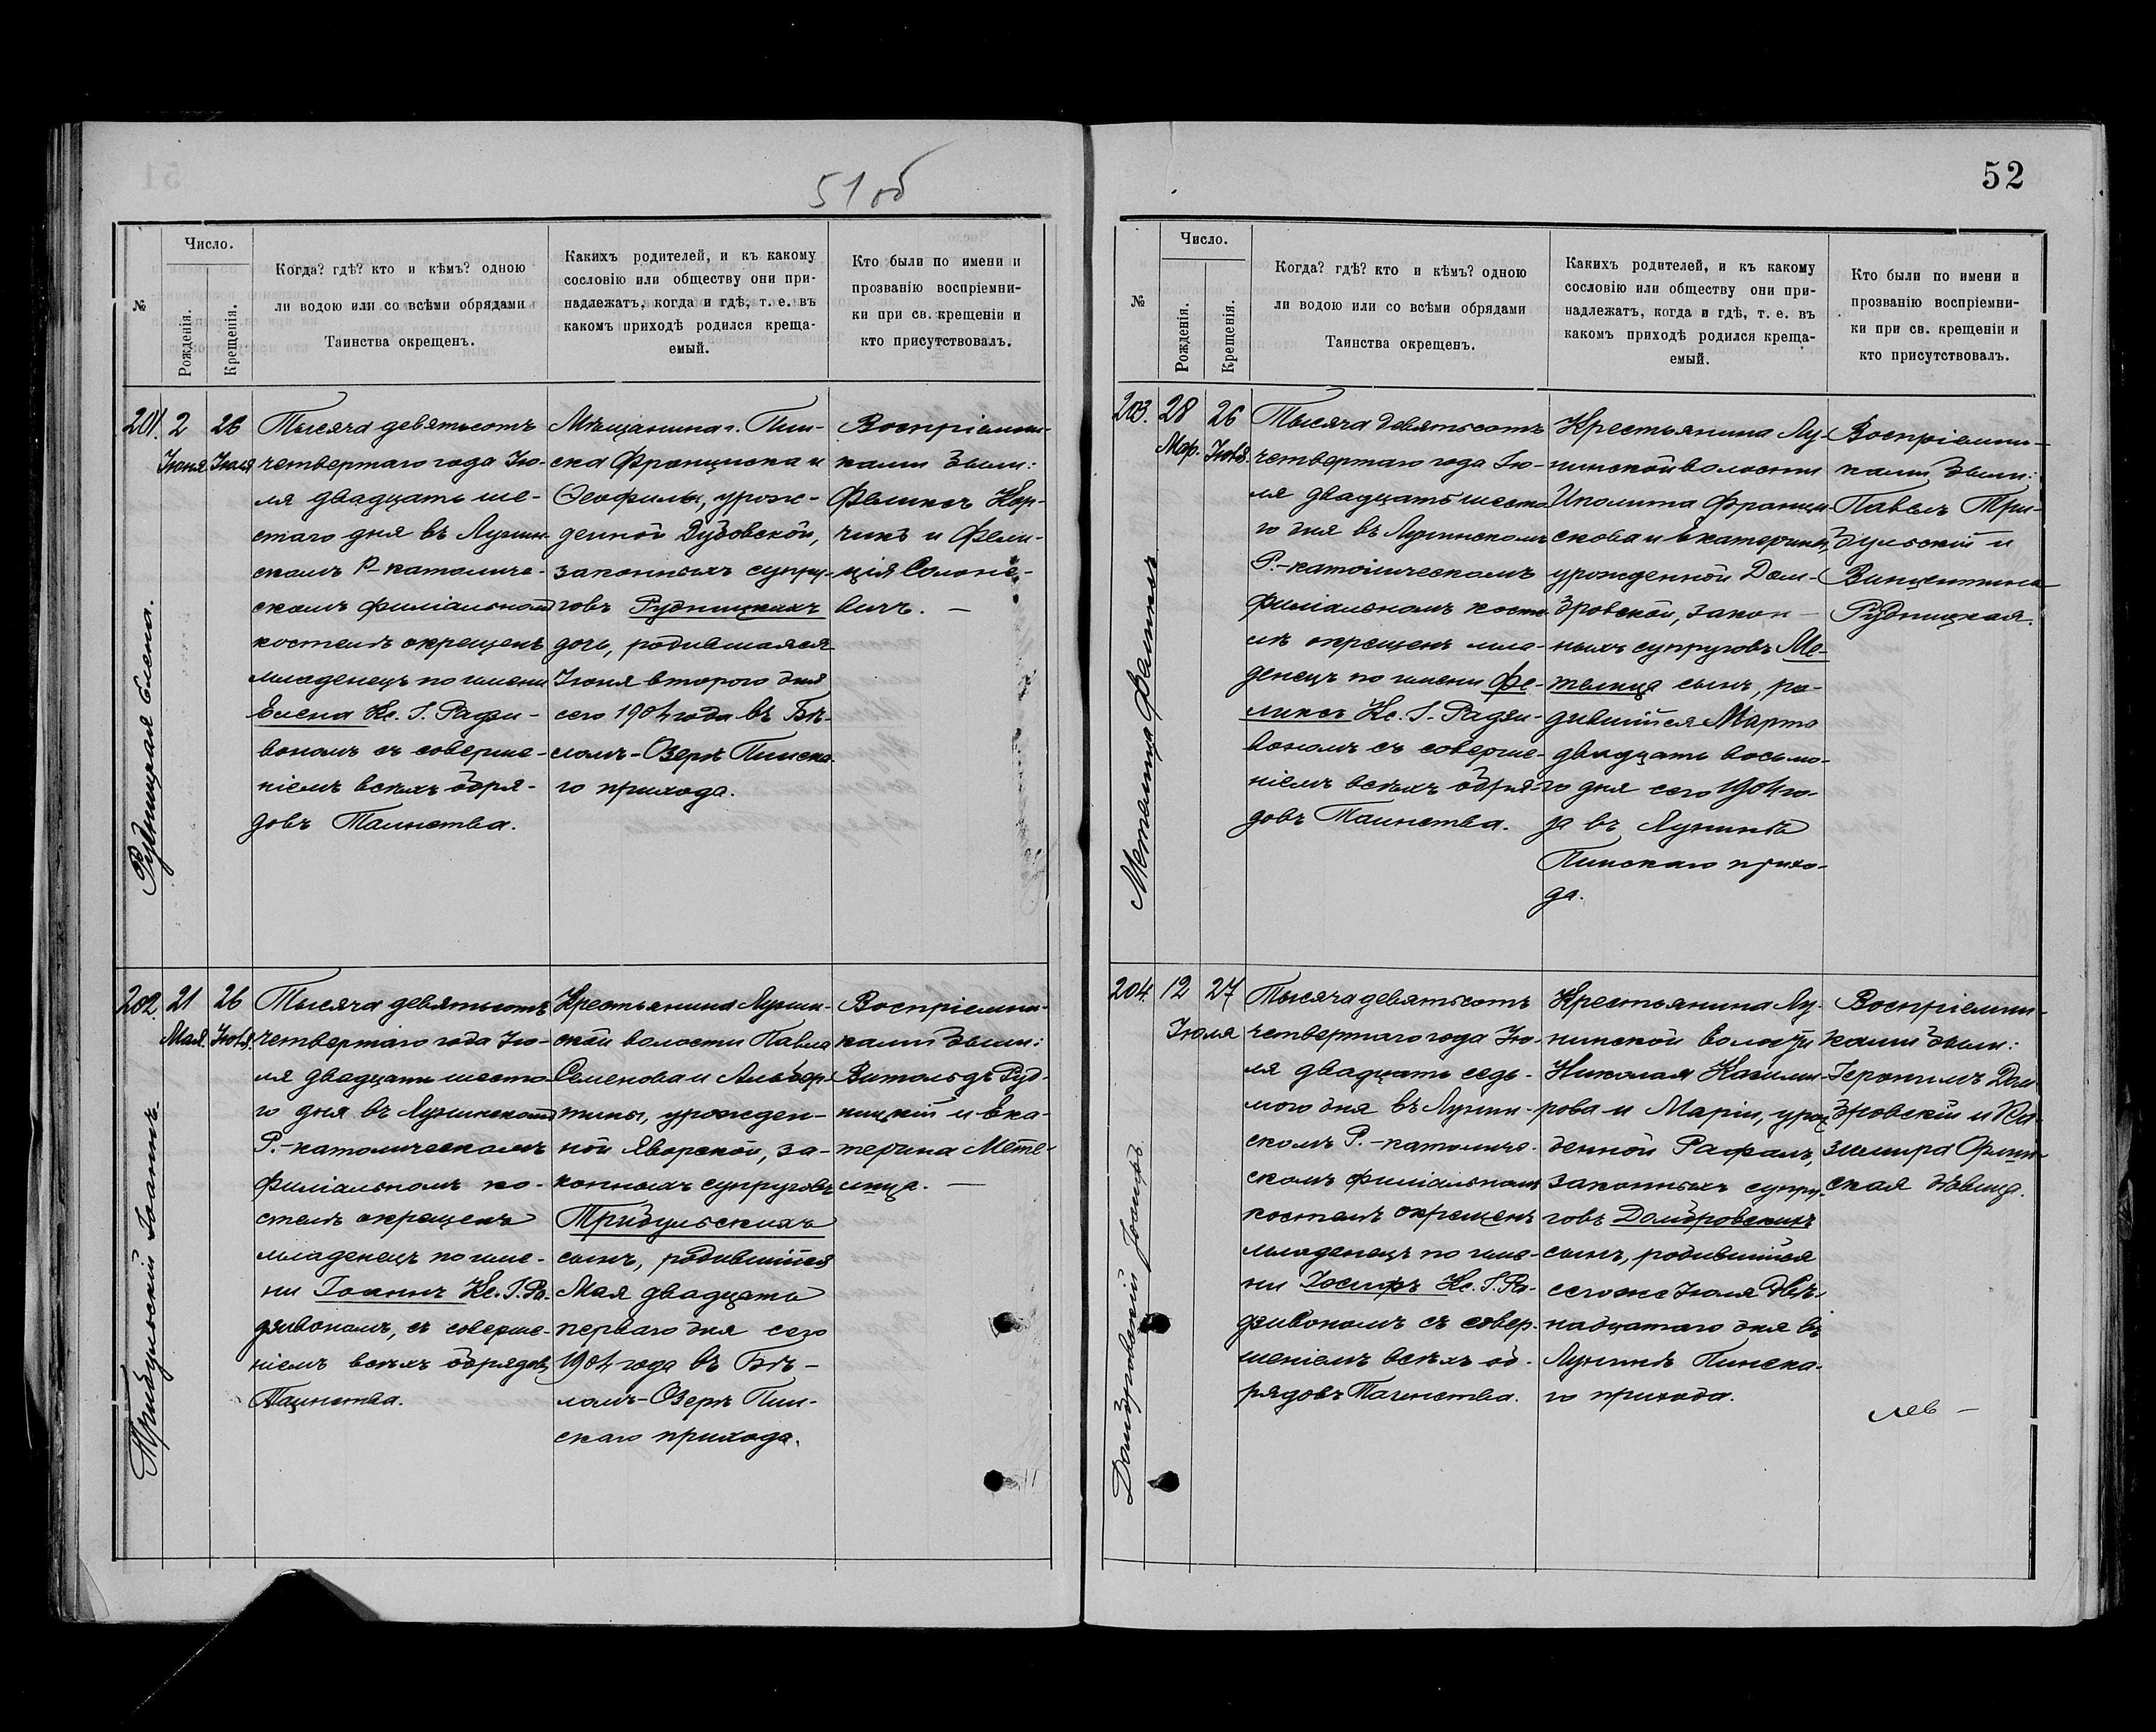 51 об
№
Число.
Рожденія.
Крещенія.
Когда? гдѣ? кто и кѣмъ? одною
ли водою или со всѣми обрядами
Таинства окрещенъ.
Какихъ родителей, и къ какому
сословію или обществу они при-
надлежатъ, когда и гдѣ, т. е. въ
какомъ приходѣ родился креща-
емый.
Кто были по имени и
прозванію воспріемни-
ки при св. крещеніи и
кто присутствовалъ.
201.
Рудницкая Елена.
2
Іюня
26
Іюля
Тысяча девятьсотъ
четвертаго года Ію-
ля двадцать ше-
стаго дня въ Лунин-
скомъ Р-католиче-
скомъ филіальномъ
костелѣ окрещенъ
младенецъ по имени
Елена Кс. І. Радзи-
вономъ съ соверше-
ніемъ всѣхъ обря-
довъ Таинства.
Мѣщанина г. Пин-
ска Франциска и
Ѳеофилы, урож-
денной Дубовской,
законныхъ супру-
говъ Рудницкихъ
дочь, родившаяся
Іюня втораго дня
сего 1904 года въ Бѣ-
ломъ-Озерѣ Пинска-
го прихода.
Воспріемни-
ками были:
Феликсъ Кор-
чикъ и Фели-
ція Солоне-
вичъ. —
202.
Трибульскій Іоаннъ.
21
Мая.
26
Іюля.
Тысяча девятьсотъ
четвертаго года Ію-
ля двадцать шеста-
го дня въ Лунинскомъ
Р.-католическомъ
филіальномъ ко-
стелѣ окрещенъ
младенецъ по име-
ни Іоаннъ Кс. І. Ра-
дзивономъ, съ соверше-
ніемъ всѣхъ обрядовъ
Таинства.
Крестьянина Лунин-
ской волости Павла
Семенова и Альбер-
тины, урожден-
ной Яворской, за-
конныхъ супруговъ
Трибульскихъ
сынъ, родившійся
Мая двадцать
перваго дня сего
1904 года въ Бѣ-
ломъ-Озерѣ Пин-
скаго прихода.
Воспріемни-
ками были:
Витольдъ Руд-
ницкій и Ека-
терина Мете-
лица. —
52
№
Число.
Рожденія.
Крещенія.
Когда? гдѣ? кто и кѣмъ? одною
ли водою или со всѣми обрядами
Таинства окрещенъ.
Какихъ родителей, и къ какому
сословію или обществу они при-
надлежатъ, когда и гдѣ, т. е. въ
какомъ приходѣ родился креща-
емый.
Кто были по имени и
прозванію воспріемни-
ки при св. крещеніи и
кто присутствовалъ.
203.
Метелица Феликсъ
28
Мар.
26
Іюля.
Тысяча девятьсотъ
четвертаго года Ію-
ля двадцать шеста-
го дня въ Лунинскомъ
Р.-католическомъ
филіальномъ косте-
лѣ окрещенъ мла-
денецъ по имени Фе-
ликсъ Кс. І. Радзи-
вономъ съ соверше-
ніемъ всѣхъ обря-
довъ Таинства.
Крестьянина Лу-
нинской волости
Иполита Францис-
кова и Екатерины,
урожденной Дом-
бровской, закон-
ныхъ супруговъ Ме-
телица сынъ, ро-
дившійся Марта
двадцать восьмо-
го дня сего 1904 го-
да въ Лунинѣ
Пинскаго прихо-
да.
Воспріемни-
ками были:
Павелъ Три-
бульскій и
Винцентина
Рудницкая.
204.
Домбровскій Іосифъ.
12
27
Іюля
Тысяча девятьсотъ
четвертаго года Ію-
ля двадцать седь-
мого дня въ Лунин-
скомъ Р.-католиче-
скомъ филіальномъ
костелѣ окрещенъ
младенецъ по име-
ни Іосифъ Кс. І. Ра-
дзивономъ съ совер-
шеніемъ всѣхъ об-
рядовъ Таинства.
Крестьянина Лу-
нинской волости
Николая Казими-
рова и Маріи, урож-
денной Рафалъ,
законныхъ супру-
говъ Домбровскихъ
сынъ, родившійся
сего же Іюля двѣ-
надцатаго дня въ
Лунинѣ Пинска-
го прихода.
Воспріемни-
ками были:
Геронимъ Дом-
бровскій и Ка-
зимира
ская дѣвица.